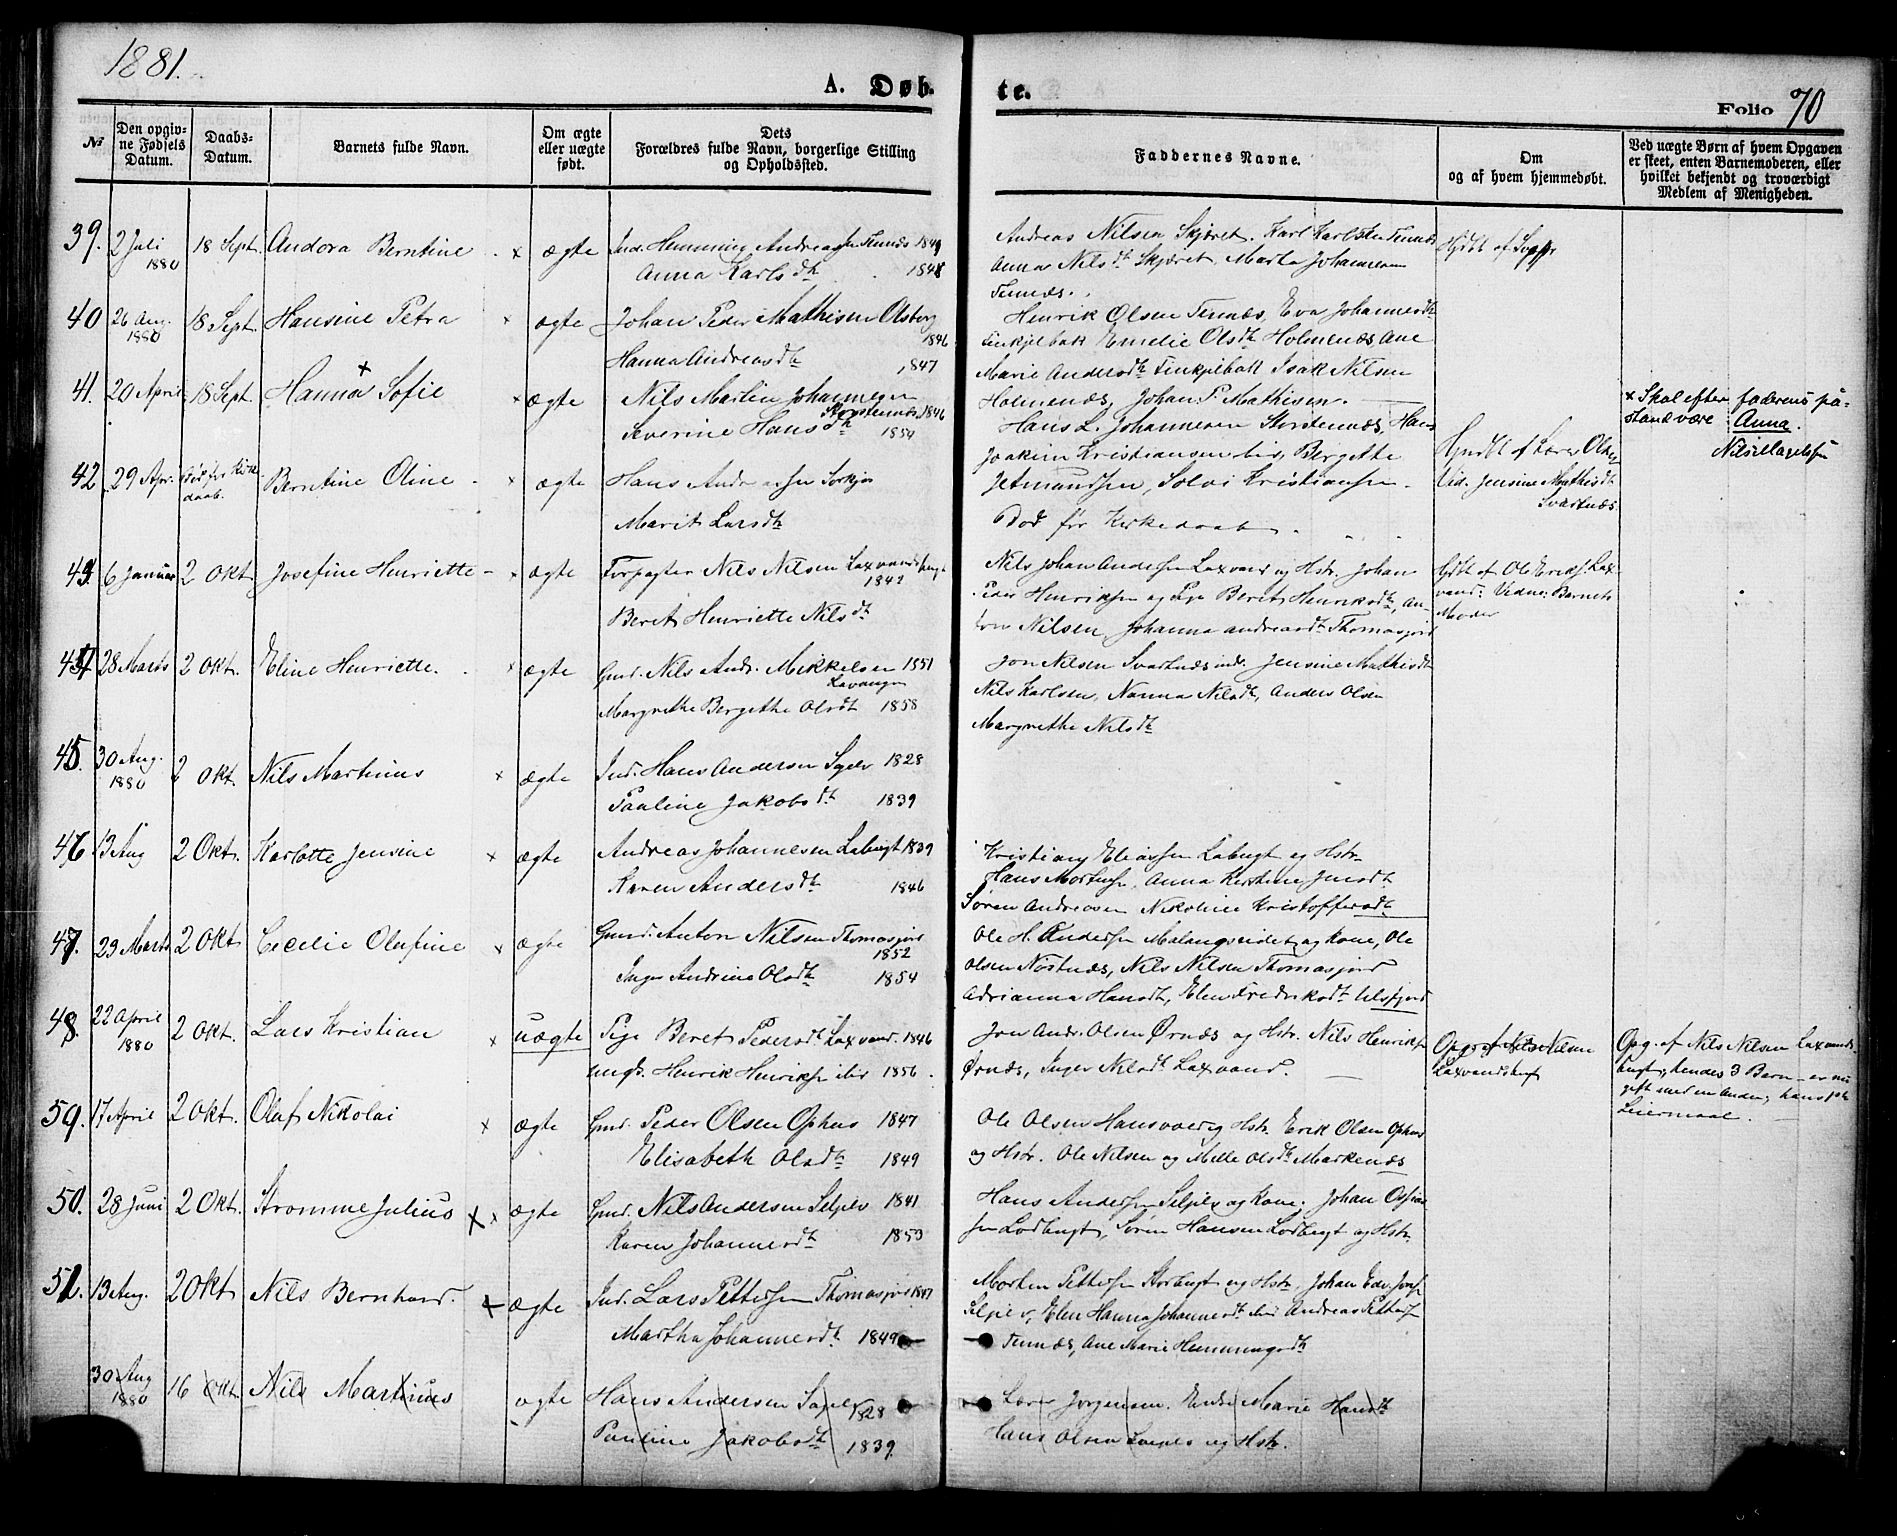 1881.
A. Døb-
te.
Folio 70
№
Den opgiv-
ne Fødsels
Datum.
Daabs-
Datum.
Barnets fulde Navn.
Om ægte
eller uægte
født.
Dets
Forældres fulde Navn, borgerlige Stilling
og Opholdssted.
Faddernes Navne.
Om
og af hvem hjemmedøbt.
Ved uægte Børn af hvem Opgaven
er skeet, enten Barnemoderen, eller
hvilket bekjendt og troværdigt
Medlem af Menigheden.
39. 2 Juli 18 Sept. Andora Berntine × ægte Ind. Hemming Andreassen Tennes 1849
1880 Anna Karls dt. 1848
Andreas Nilsen Skjæret. Karl Karlsen Tennes
Anna Nils dt Skjæret, Marta Johannesen
Tennes.
Hjdbt af
40 26 Aug. 18 Sept. Hansine Petra × ægte Johan Peder Mathisen Olsborg
1880 1846
Hanna Andreas dt 1847
Henrik Olsen Tennes, Eva Johannesdt
Finkjelbak Emelie Ols dt Holmenæs Ane
Marie Anders dt Finkjelbak Isak Nilsen
Holmenæs, Johan P. Mathisen.
41. 20 April 18 Sept. Hanna × Sofie × ægte Nils Martin Johannesen
Storstennes 1846
Severine Hans dt 1854
Hans L. Johannesen Storstennes, Hans
Joakim Kristiansen ibid, Bergette
Jetmundsen, Solvi Kristiansen.
× Skal efter faderens på-
stand være Anna.
42 29 Apr. død før Kirke
daab. Berntine Oline × ægte Hans Andreassen
Marit Lars dt
Død før Kirkedaab
Hjmdbt af Lærer Olsen
Vid. Jensine Mathisdt
Svartnæs
43. 6 Januar 2 Okt Josefine Henriette × ægte Forpagter Nils Nilsen Laxvandsbugt
1842
Beret Henriette Nils dt
Nils Johan Andersen Laxvand og Hstr. Johan
Peder Henriksen og Pige Berit Henriksdt, An-
ton Nilsen, Johanna Andreasdt Thomasjord
Hjdbt af Ole Eriks. Lax-
vand: Vidne: Barnets
Moder
44 28 Marts 2 Okt. Eline Henriette × ægte Gmd. Nils Andr. Mikkelsen 1851
Lavangen
Margrethe Bergethe Olsdt 1858
Jon Nilsen Svartnæs ind. Jensine Mathisdt
Nils Karlsen, Nanna Nilsdt, Anders Olsen
Margrethe Nilsdt
45. 30 Aug. 2 Okt. Nils Martinus × ægte Ind. Hans Andersen 1828
1880 Pauline Jakobs dt 1839
46 13 Aug 2 Okt. Karlotte Jensine × ægte Andreas Johannesen Labugt 1839
Karen Anders dt 1846
Kristian Eliassen Labugt og Hstr.
Hans Mortens, Anna Kerstine Jensdt
Søren Andreasen Nikoline Kristoffersdt
47. 23 Marts 2 Okt Cecelie Olufine × ægte Gmd. Anton Nilsen Thomasjord
1852
Inger Andrine Olsdt 1854
Ole H. Andersen Malangseidet og Kone, Ole
Olsen Nostnæs, Nils Nilsen Thomasjord
Adrianna Hansdt, Elen Fredriksdt Ulsfjord
48. 22 April 2 Okt. Lars Kristian × uægte Pige Beret Pedersdt Laxvand. 1846
1880 ungk. Henrik Henriksen ibid 1856.
Jon Andr. Olsen Ørnæs og Hstr. Nils Henriksen
Ørnæs, Inger Nilsdt Laxvand.
Opg. af Nils Nilsen
Laxvandsbugt
Opg. af Nils Nilsen Laxvands-
bugt, hendes 3 Barn - er nu
gift med en Anden; hans 1ste
Leiermaal.
59. 17 April 2 Okt. Olaf Nikolai × ægte Gmd. Peder Olsen Ophus 1847
Elisabeth Olsdt 1849
Ole Olsen Hansvold og Hstr. Erik Olsen Ophus
og Hstr. Ole Nilsen og Mille Olsdt Markenæs
50. 28 Juni 2 Okt. Stromme Julius × × ægte Gmd. Nils Andersen Seljelv 1841
Karen Johannesdt 1853
Hans Andersen Seljelv og Kone. Johan
sen Lodbugt, Søren Hansen Lodbugt og Hstr.
51. 13 Aug. 2 Okt Nils Bernhard. × ægte Ind. Lars Pettersen Thomasjord 1847
Martha Johannesdt. 1849
Morten Pettersen Storbugt og Hstr, Johan Edv. Josefs.
Seljelv, Elen Hanna Johannesdt ibid Andreas Petters.
Tennæs, Ane Marie Hemmingsdt
30 Aug 16 Okt. Nils Martinus ægte Hans Andersen 1828
1880 Pauline Jakobsdt 1839
Jørgensen. Marie Hansdt
Hans Olsen og Hstr.